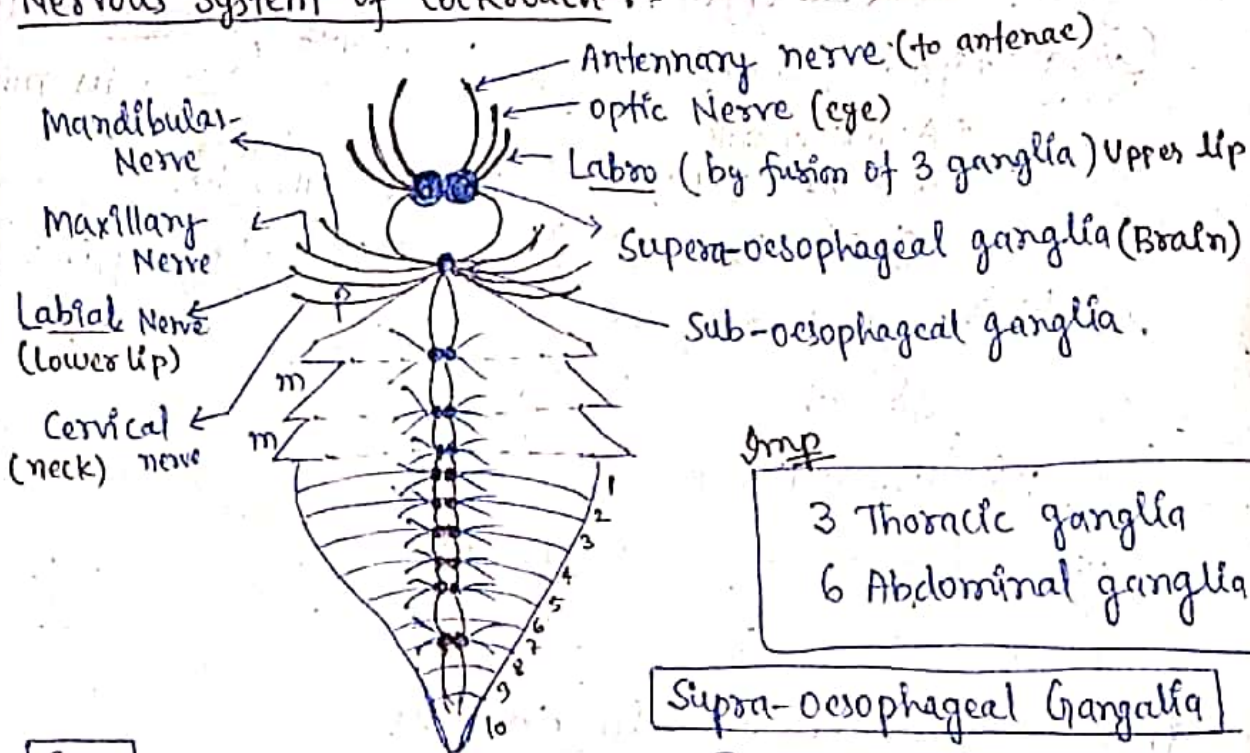 Nervous System of Cockroach :-
Antennary nerve (to antenae)
optic Nerve (eye)
Labro (by fusion of 3 ganglia) Upper lip
Supera-oesophageal ganglia (Brain)
Sub-oesophageal ganglia.
Mandibular
Nerve
Maxillary
Nerve
Labial Nerve
(lower lip)
Cervical
(neck) nerve
P
m
m
1
2
3
4
5
6
7
8
9
10
Imp
3 Thoracic ganglia
6 Abdominal ganglia
Supra-oesophageal Gangalia